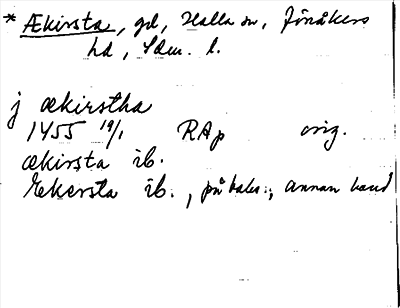 * Ækirsta, gd, Halla sn, Jönåkers
hd, Sdm. l.
j ækirstha
1455 19/1 RAp orig.
ækirsta ib.
Ekersta ib., på baks., annan hand